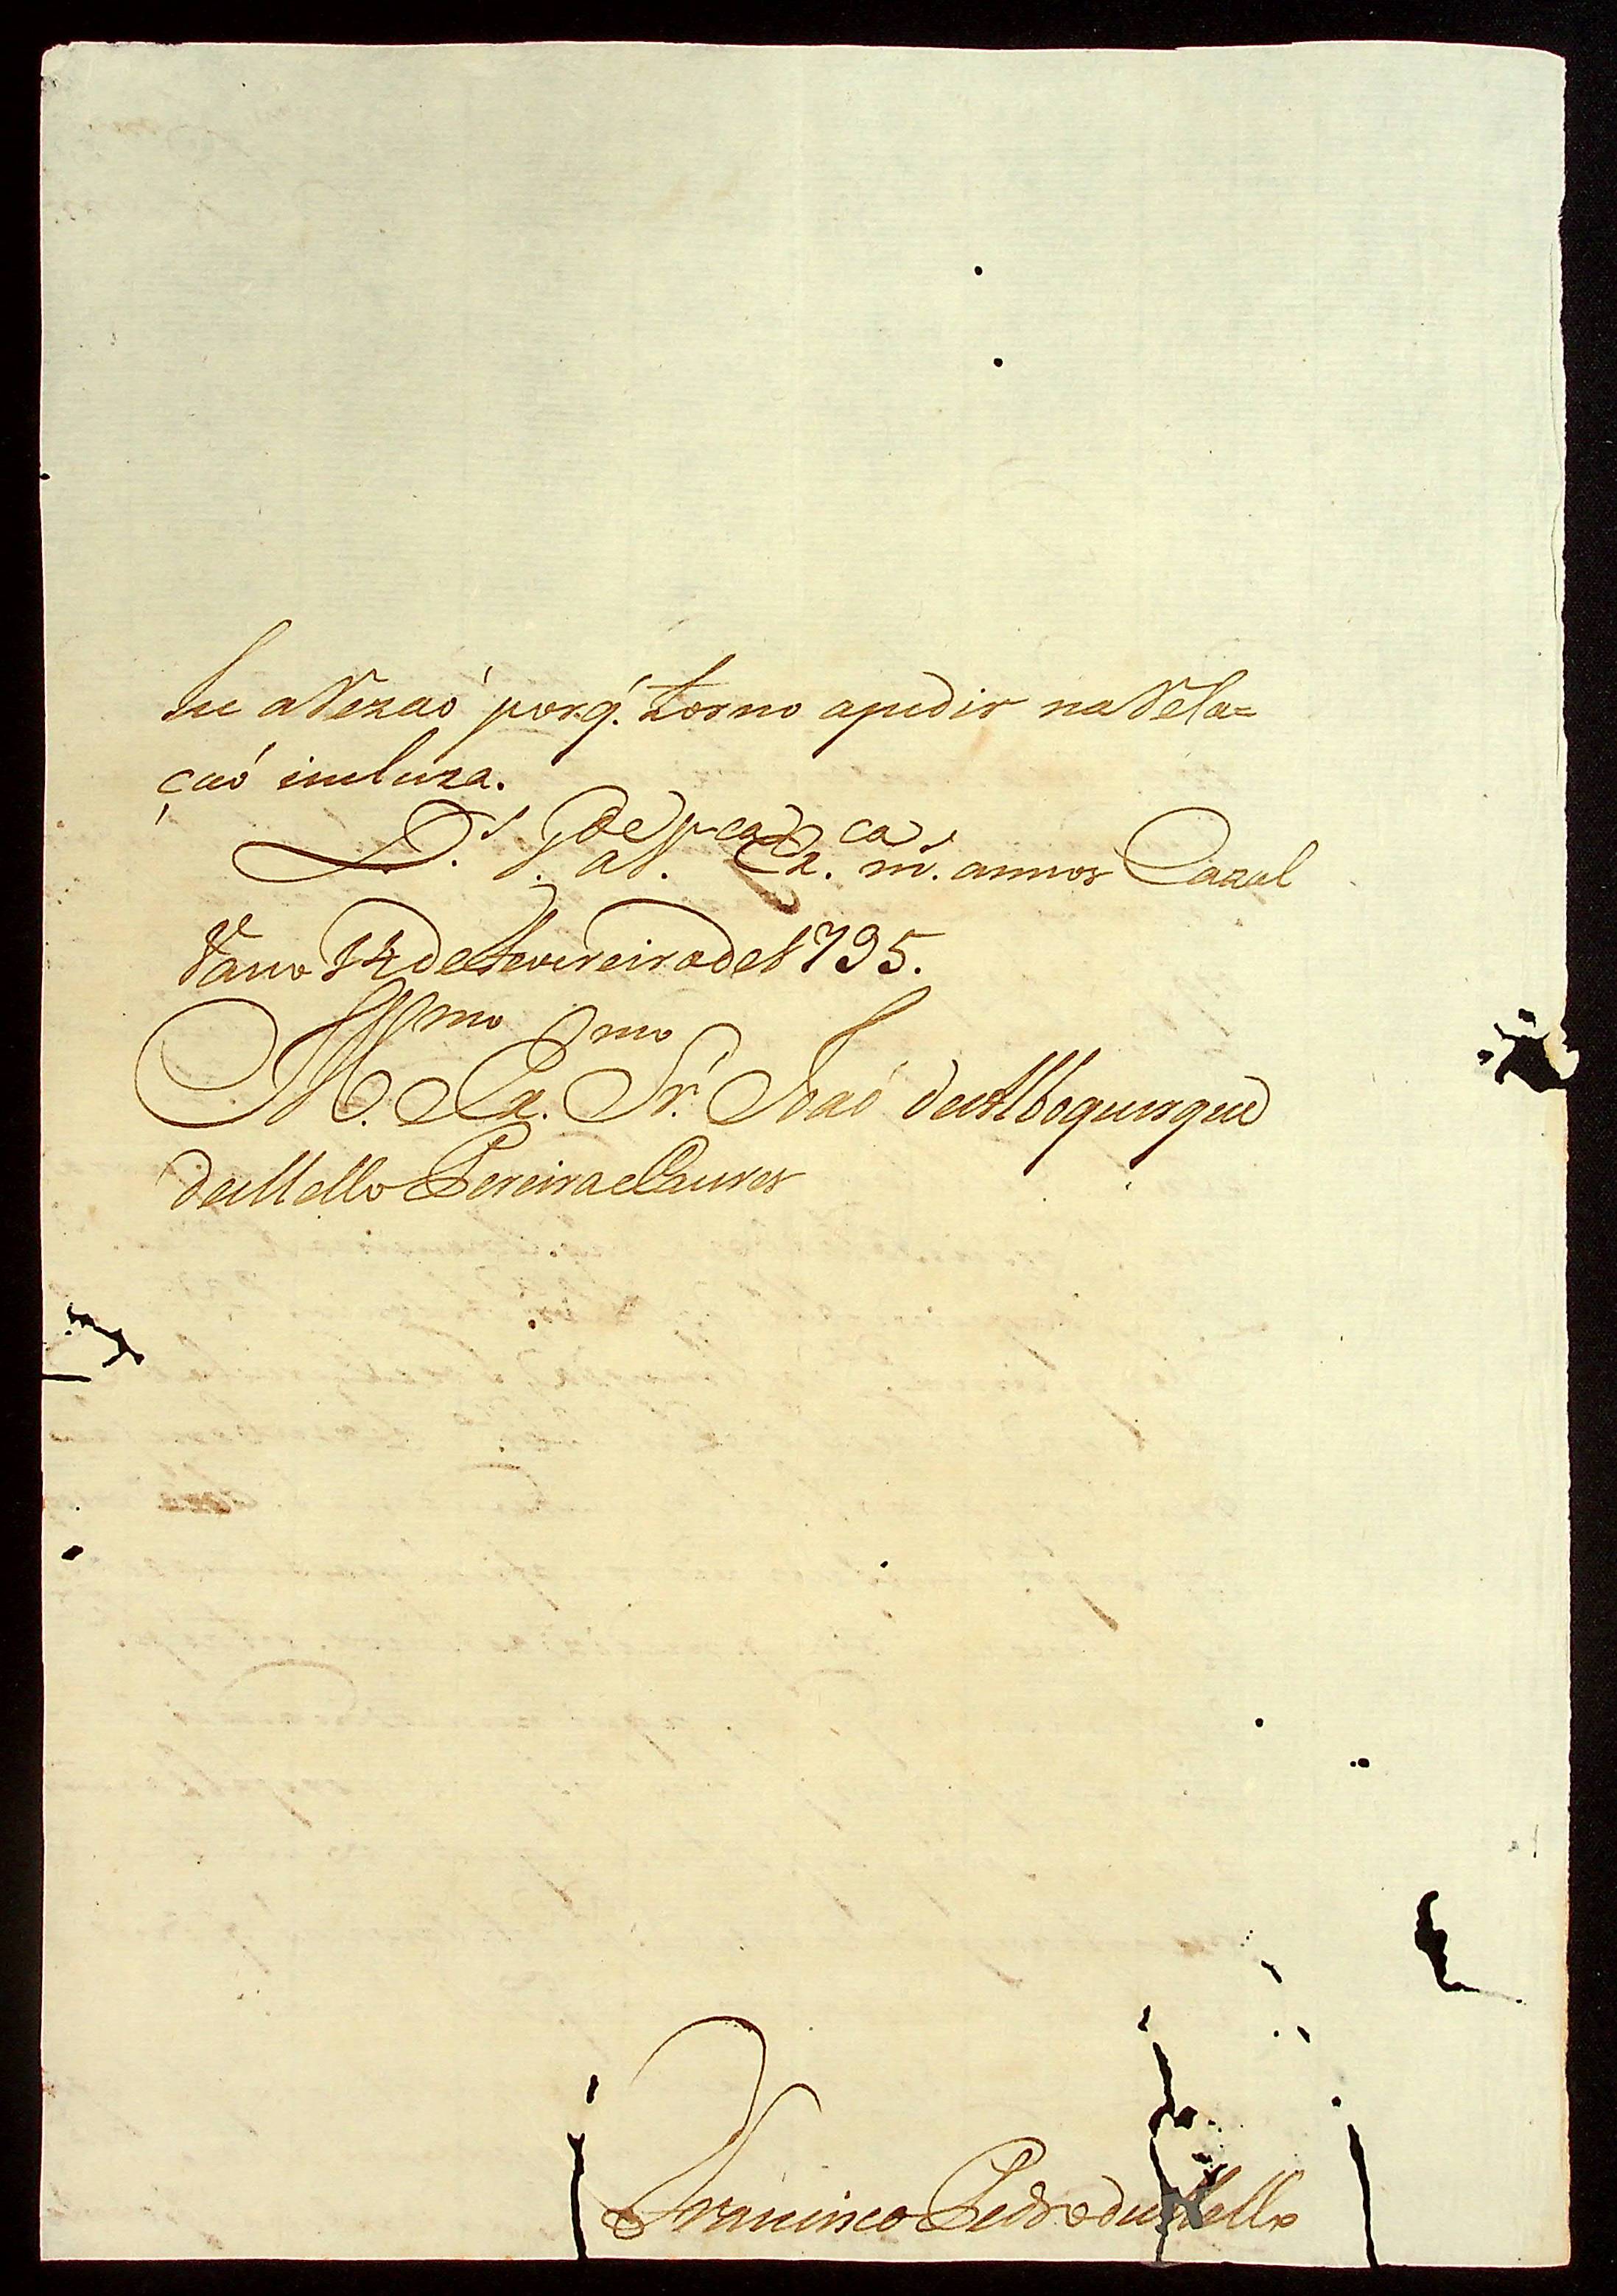 he a Rezaó porq̃. torno apedir na Rela=
çaó incluza.
D.s g.de a V. Ex.ca m.ca annos Cazal
Vasco 14 de Fevereiro de 1795.
Ill.mo Ex.mo Sr. Joaó de Alboquerque
de Mello Pereira e Caceres
Francisco Pedro de Mello